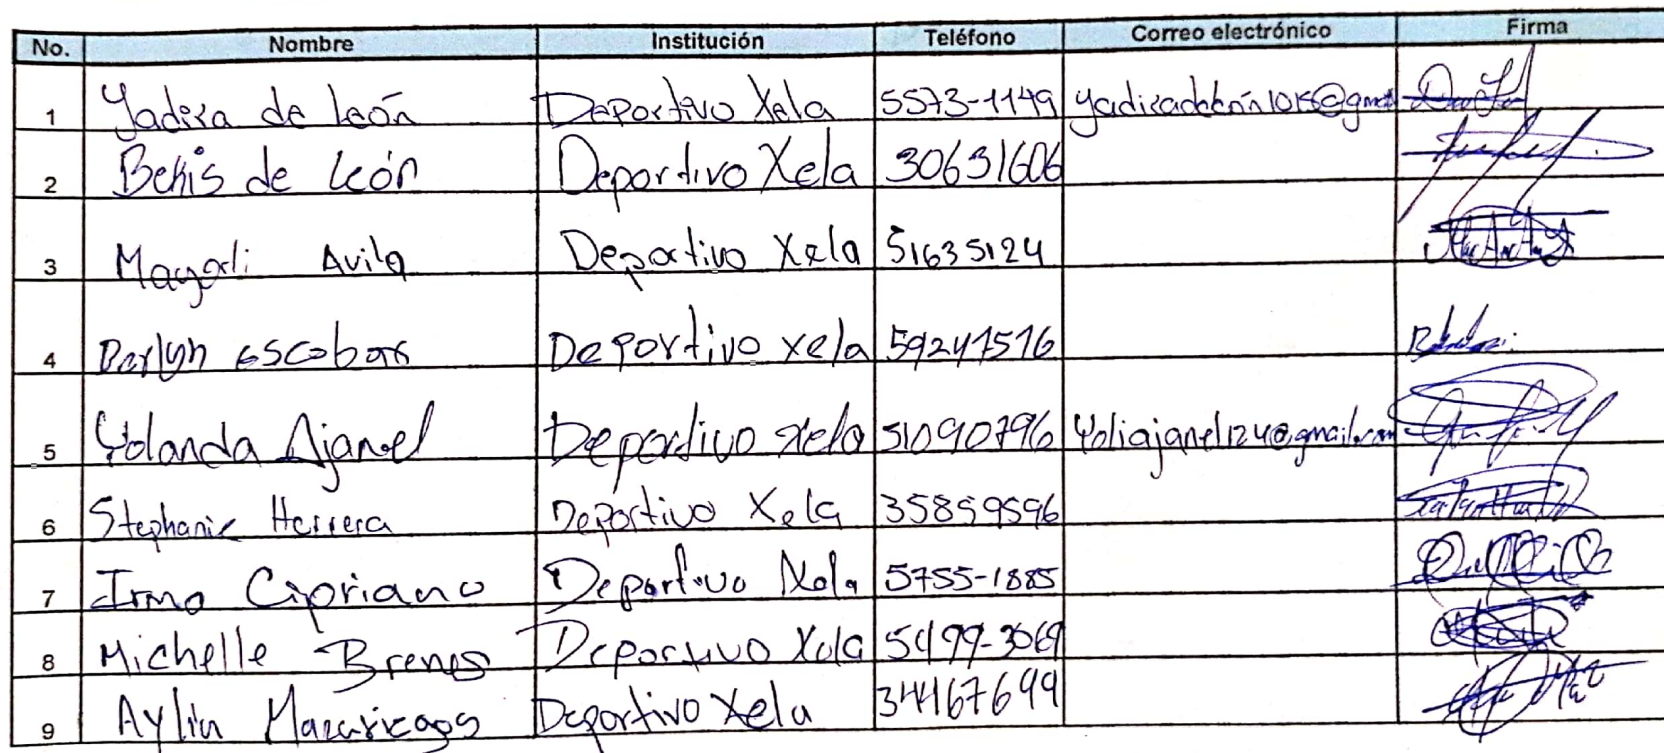 No. Nombre Institución Teléfono Correo electrónico Firma
1 Yadira de león Deportivo Xela 5573-1149
2 Bekis de león Deportivo Xela 30631606
3 Mayarli Avila Deportivo Xela 51635124
4 Darlyn escobar Deportivo xela 59241516
5 Yolanda Ajanel Deportivo xela 51090796 Yoliajanel124@gmail.com
6 Stephanie Herrera Deportivo Xela 35859596
7 Irma Cipriano Deportivo Xela 5755-1885
8 Michelle Brenes Deportivo Xela 5499-3069
9 Aylin Mazariegos Deportivo Xela 34467699